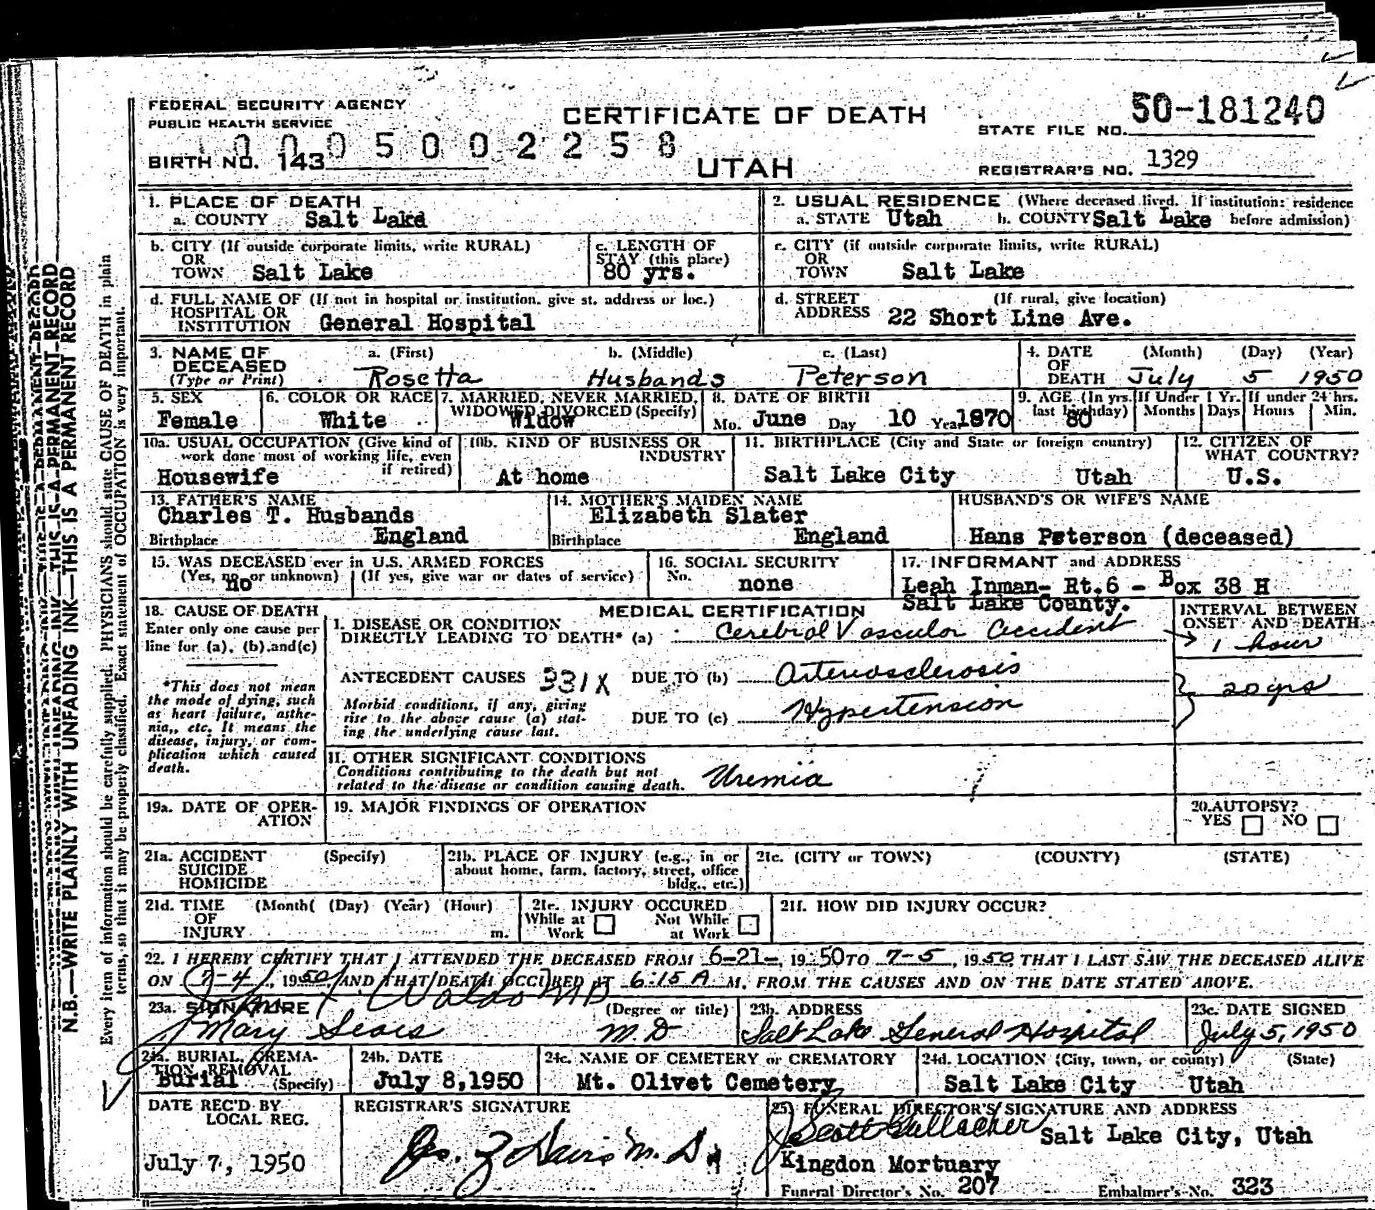 FEDERAL SECURITY AGENCY
PUBLIC HEALTH SERVICE
CERTIFICATE OF DEATH
UTAH
STATE FILE NO. 50-181240
REGISTRAR'S NO. 1329
BIRTH NO. 143
0005002258
N.B.—WRITE PLAINLY WITH UNFADING INK—THIS IS A PERMANENT RECORD
Every item of information should be carefully supplied. PHYSICIANS should state CAUSE OF DEATH in plain
terms, so that it may be properly classified. Exact statement of OCCUPATION is very important.
1. PLACE OF DEATH
a. COUNTY Salt Lake
2. USUAL RESIDENCE (Where deceased lived. If institution: residence
a. STATE Utah b. COUNTY Salt Lake before admission)
b. CITY (If outside corporate limits, write RURAL)
OR
TOWN Salt Lake
c. LENGTH OF
STAY (this place)
80 yrs.
c. CITY (if outside corporate limits, write RURAL)
OR
TOWN Salt Lake
d. FULL NAME OF (If not in hospital or institution, give st. address or loc.)
HOSPITAL OR
INSTITUTION General Hospital
d. STREET (If rural, give location)
ADDRESS 22 Short Line Ave.
3. NAME OF DECEASED (Type or Print)
a. (First) b. (Middle) c. (Last)
Rosetta Husbands Peterson
4. DATE OF DEATH (Month) (Day) (Year)
July 5 1950
5. SEX
Female
6. COLOR OR RACE
White
7. MARRIED, NEVER MARRIED,
WIDOWED DIVORCED (Specify)
Widow
8. DATE OF BIRTH
Mo. June Day 10 Year 1870
9. AGE (In yrs. last birthday) If Under 1 Yr. If under 24 hrs.
80 Months Days Hours Min.
10a. USUAL OCCUPATION (Give kind of
work done most of working life, even
if retired)
Housewife
10b. KIND OF BUSINESS OR
INDUSTRY
At home
11. BIRTHPLACE (City and State or foreign country)
Salt Lake City Utah
12. CITIZEN OF
WHAT COUNTRY?
U.S.
13. FATHER'S NAME
Charles T. Husbands
Birthplace England
14. MOTHER'S MAIDEN NAME
Elizabeth Slater
Birthplace England
HUSBAND'S OR WIFE'S NAME
Hans Peterson (deceased)
15. WAS DECEASED ever in U.S. ARMED FORCES
(Yes, no or unknown) (If yes, give war or dates of service)
no
16. SOCIAL SECURITY
No. none
17. INFORMANT and ADDRESS
Leah Inman- Rt.6 - Box 38 H
Salt Lake County.
18. CAUSE OF DEATH
Enter only one cause per
line for (a), (b),and(c)
*This does not mean
the mode of dying, such
as heart failure, asthe-
nia,, etc. It means the
disease, injury, or com-
plication which caused
death.
MEDICAL CERTIFICATION
I. DISEASE OR CONDITION
DIRECTLY LEADING TO DEATH* (a) Cerebral Vascular accident
INTERVAL BETWEEN
ONSET AND DEATH
1 hour
ANTECEDENT CAUSES 331X DUE TO (b) Arteriosclerosis
Morbid conditions, if any, giving
rise to the above cause (a) stat-
ing the underlying cause last.
DUE TO (c) Hypertension
20 yrs
II. OTHER SIGNIFICANT CONDITIONS
Conditions contributing to the death but not
related to the disease or condition causing death. Uremia
19a. DATE OF OPER-
ATION
19. MAJOR FINDINGS OF OPERATION
20. AUTOPSY?
YES NO
21a. ACCIDENT (Specify)
SUICIDE
HOMICIDE
21b. PLACE OF INJURY (e.g., in or
about home, farm, factory, street, office
bldg., etc.)
21c. (CITY or TOWN) (COUNTY) (STATE)
21d. TIME (Month( (Day) (Year) (Hour)
OF
INJURY m.
21e. INJURY OCCURED
While at Work Not While at Work
21f. HOW DID INJURY OCCUR?
22. I HEREBY CERTIFY THAT I ATTENDED THE DECEASED FROM 6-21-, 1950 TO 7-5, 1950, THAT I LAST SAW THE DECEASED ALIVE
ON 7-4, 1950 AND THAT DEATH OCCURED AT 6:15 A M. FROM THE CAUSES AND ON THE DATE STATED ABOVE.
Waldo MD
23a. SIGNATURE (Degree or title)
Mary Sears M.D
23b. ADDRESS
Salt Lake General Hospital
23c. DATE SIGNED
July 5, 1950
24a. BURIAL, CREMA-
TION REMOVAL
Burial (Specify)
24b. DATE
July 8,1950
24c. NAME OF CEMETERY or CREMATORY
Mt. Olivet Cemetery
24d. LOCATION (City, town, or county) (State)
Salt Lake City Utah
DATE REC'D BY
LOCAL REG.
July 7, 1950
REGISTRAR'S SIGNATURE
M. D.
25. FUNERAL DIRECTOR'S SIGNATURE AND ADDRESS
J Scott Gallacher Salt Lake City, Utah
Kingdon Mortuary
Funeral Director's No. 207 Embalmer's No. 323